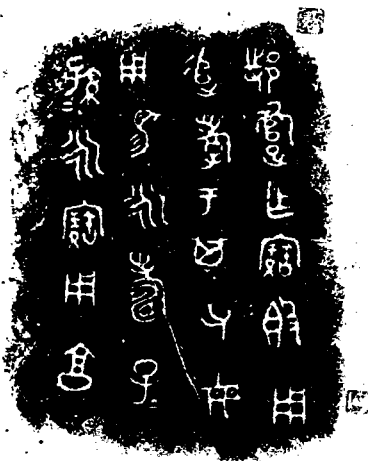 邿遣乍寶𣪘用
追孝于其父母
用易永壽子
孫=永寶用享